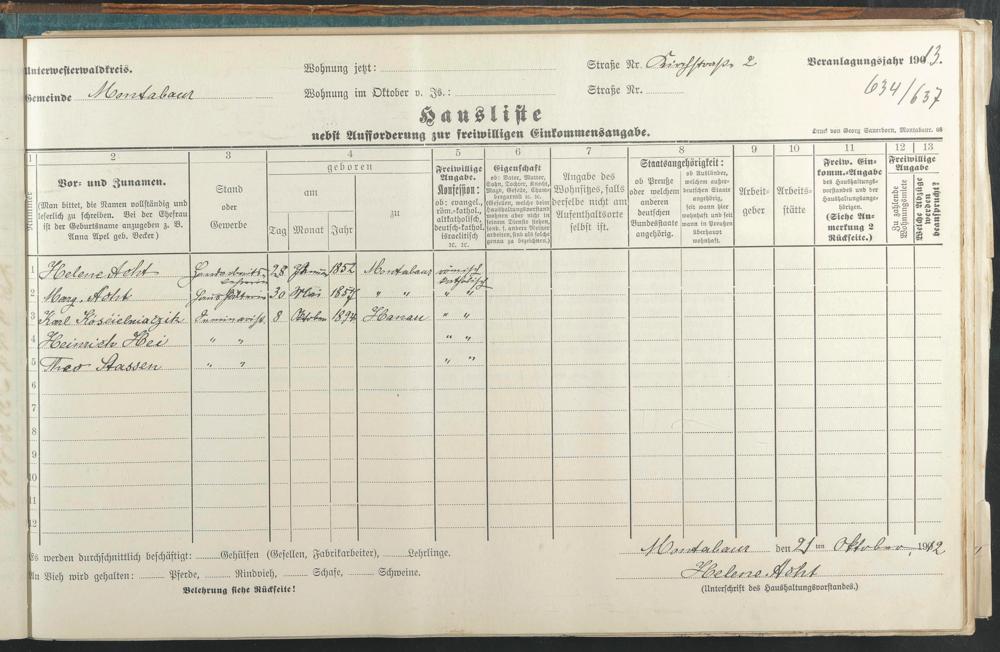 Unterwesterwaldkreis. Wohnung jetzt: Straße Nr. Kirchstraße 2 Veranlagungsjahr 1913.
Gemeinde Montabaur Wohnung im Oktober v. Js.: Straße Nr. 634/637
Hausliste
nebst Aufforderung zur freiwilligen Einkommensangabe.
Druck von Georg Sauerborn, Montabaur. 08
1 2 3 4 5 6 7 8 9 10 11 12 13
Nummer
Vor- und Zunamen.
(Man bittet, die Namen vollständig und
leserlich zu schreiben. Bei der Ehefrau
ist der Geburtsname anzugeben z. B.
Anna Apel geb. Becker)
Stand
oder
Gewerbe
geboren
am
Tag Monat Jahr
zu
Freiwillige
Angabe.
Konfession:
ob: evangel.,
röm.-kathol.,
altkatholisch,
deutsch-kathol.
israelitisch
ec. ec.
Eigenschaft
ob: Vater, Mutter,
Sohn, Tochter, Knecht,
Magd, Geselle, Cham-
bergarnist ec. ec.
(Gesellen, welche beim
Haushaltungsvorstand
wohnen aber nicht in
seinem Dienste stehen,
sond. f. andere Meister
arbeiten, sind als solche
genau zu bezeichnen.)
Angabe des
Wohnsitzes, falls
derselbe nicht am
Aufenthaltsorte
selbst ist.
Staatsangehörigkeit:
ob Preuße
oder welchem
anderen
deutschen
Bundesstaate
angehörig.
ob Ausländer,
welchem außer-
deutschen Staate
angehörig,
seit wann hier
wohnhaft und seit
wann in Preußen
überhaupt
wohnhaft.
Arbeit-
geber
Arbeits-
stätte
Freiw. Ein-
komm.-Angabe
des Haushaltungs-
vorstandes und der
Haushaltungsange-
hörigen.
(Siehe An-
merkung 2
Rückseite.)
Freiwillige
Angabe
Zu zahlende
Wohnungsmiete
Welche Abzüge
werden
beansprucht?
1 Helene Acht Handarbeits-lehrerin 28 Januar 1852 Montabaur römisch katholisch
2 Marg. Acht Haushälterin 30 Mai 1857 " " " "
3 Karl Seminarist 8 Oktober 1894 Hanau " "
4 Heinrich Hei " " " "
5 Theo Stassen " " " "
6
7
8
9
10
11
12
Es werden durchschnittlich beschäftigt: Gehülfen (Gesellen, Fabrikarbeiter), Lehrlinge.
Montabaur den 21ten Oktober 1912
An Vieh wird gehalten: Pferde, Rindvieh, Schafe, Schweine.
Helene Acht
Belehrung siehe Rückseite!
(Unterschrift des Haushaltungsvorstandes.)